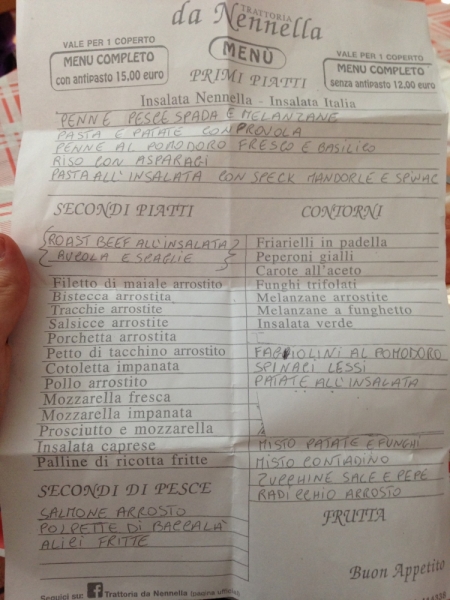 TRATTORIA
da Nennella
VALE PER 1 COPERTO
MENU COMPLETO
con antipasto 15,00 euro
MENÙ
VALE PER 1 COPERTO
MENU COMPLETO
senza antipasto 12,00 euro
PRIMI PIATTI
Insalata Nennella - Insalata Italia
PENNE PESCE SPADA E MELANZANE
PASTA E PATATE CON PROVOLA
PENNE AL POMODORO FRESCO E BASILICO
RISO CON ASPARAGI
PASTA ALL'INSALATA CON SPECK MANDORLE E SPINAC
SECONDI PIATTI
ROAST BEEF ALL'INSALATA
RUCOLA E SCAGLIE
Filetto di maiale arrostito
Bistecca arrostita
Tracchie arrostite
Salsicce arrostite
Porchetta arrostita
Petto di tacchino arrostito
Cotoletta impanata
Pollo arrostito
Mozzarella fresca
Mozzarella impanata
Prosciutto e mozzarella
Insalata caprese
Palline di ricotta fritte
SECONDI DI PESCE
SALMONE ARROSTO
POLPETTE DI BACCALA'
ALICI FRITTE
CONTORNI
Friarielli in padella
Peperoni gialli
Carote all'aceto
Funghi trifolati
Melanzane arrostite
Melanzane a funghetto
Insalata verde
FAGIOLINI AL POMODORO
SPINACI LESSI
PATATE ALL'INSALATA
MISTO PATATE E FUNGHI
MISTO CONTADINO
ZUCCHINE SALE E PEPE
RADICCHIO ARROSTO
FRUTTA
Buon Appetito
Seguici su: f Trattoria da Nennella (pagina ufficiale)